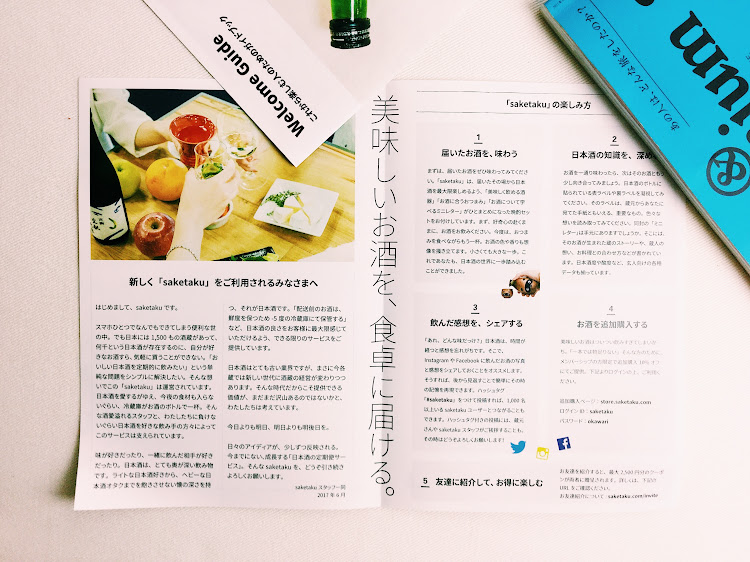 Welcome Guide
これから楽しむ人のためのガイドブック
あの人は、どんな旅をしたのか?
ium
美味しいお酒を、食卓に届ける。
新しく「saketaku」をご利用されるみなさまへ
はじめまして、saketaku です。
スマホひとつでなんでもできてしまう便利な世
の中。でも日本には 1,500 もの酒蔵があって、
何千という日本酒が存在するのに、自分が好
きなお酒すら、気軽に買うことができない。「お
いしい日本酒を定期的に飲みたい」という単
純な問題をシンプルに解決したい。そんな想
いでこの「saketaku」は運営されています。
日本酒を愛するがゆえ、今夜の食材も入らな
いぐらい、冷蔵庫がお酒のボトルで一杯。そん
な酒愛溢れるスタッフと、わたしたちに負けな
いぐらい日本酒を好きな飲み手の方々によって
このサービスは支えられています。
味が好きだったり、一緒に飲んだ相手が好き
だったり。日本酒は、とても奥が深い飲み物
です。ライトな日本酒好きから、ヘビーな日
本酒オタクまでを飽きさせない懐の深さを持
つ、それが日本酒です。「配送前のお酒は、
鮮度を保つため -5 度の冷蔵庫にて保管する」
など、日本酒の良さをお客様に最大限感じて
いただけるよう、できる限りのサービスをご
提供しています。
日本酒はとても古い業界ですが、まさに今各
蔵では新しい世代に酒蔵の経営が変わりつつ
あります。そんな時代だからこそ提供できる
価値が、まだまだ沢山あるのではないかと、
わたしたちは考えています。
今日よりも明日、明日よりも明後日を。
日々のアイディアが、少しずつ反映される。
今までにない、成長する「日本酒の定期便サー
ビス」。そんな saketaku を、どうぞ引き続き
よろしくお願いします。
saketaku スタッフ一同
2017 年 6 月
「saketaku」の楽しみ方
1
届いたお酒を、味わう
まずは、届いたお酒をぜひ味わってみてくださ
い。「saketaku」は、届いたその場から日本
酒を最大限楽しめるよう、「美味しく飲める酒
器」「お酒に合うおつまみ」「お酒について学
べるミニレター」がひとまとめになった晩酌セッ
トをお付けしています。まず、好奇心の赴くま
まに、お酒をお飲みください。今度は、おつま
みを食べながらもう一杯。お酒の色や香りも想
像を掻き立てます。小さくても大きな一歩。こ
れであなたも、日本酒の世界に一歩踏み込む
ことができました。
2
日本酒の知識を、深め
お酒を一通り味わったら、次はそのお酒をもう
少し向き合ってみましょう。日本酒のボトルに
貼られている表ラベルや裏ラベルを凝視してみ
てください。そのラベルは、蔵元からあなたに
宛てた手紙ともいえる、重要なもの。色々な
想いを読み取ってみてください。同封の「ミニ
レター」は手元にありますでしょうか。そこには、
そのお酒が生まれた蔵のストーリーや、蔵人の
想い、お料理との合わせ方などが書かれてい
ます。日本酒度や酸度など、玄人向けの各種
データも揃っています。
3
飲んだ感想を、シェアする
「あれ、どんな味だっけ?」日本酒は、時間が
経つと感想を忘れがちです。そこで、
Instagram や Facebook に飲んだお酒の写真
と感想をシェアしておくことをオススメします。
そうすれば、後から見返すことで簡単にその時
の記憶を再現できます。ハッシュタグ
「#saketaku」をつけて投稿すれば、1,000 名
以上いる saketaku ユーザーとつながることも
できます。ハッシュタグ付きの投稿には、蔵元
さんや saketaku スタッフがご挨拶することも。
その時はどうぞよろしくお願いします!
4
お酒を追加購入する
追加購入ページ:store.saketaku.com
ログイン ID:saketaku
パスワード:okawari
5 友達に紹介して、お得に楽しむ
お友達を紹介すると、最大 2,500 円分のクーポ
ンが両者に贈呈されます。詳しくは、下記の
URL をご確認ください。
お友達紹介について:saketaku.com/invite